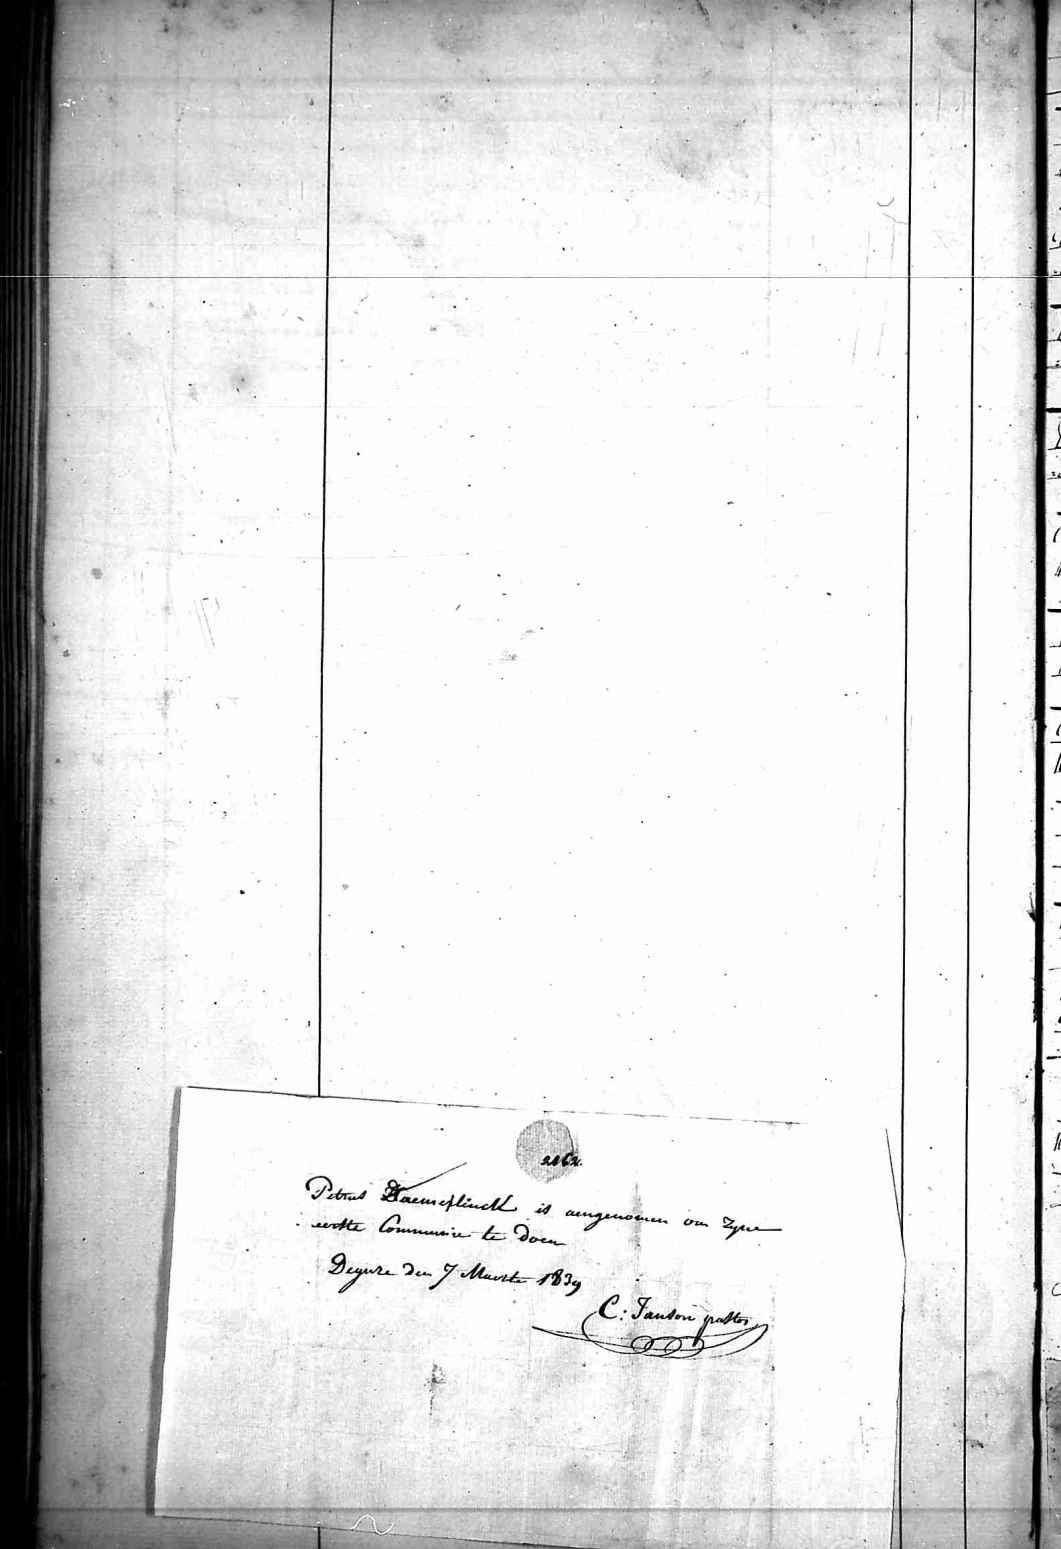 2162.
Petrus is aengenomen om zyne
eerste Communie te doen
Deynze den 7 Maerte 1839
C: Janson pastor